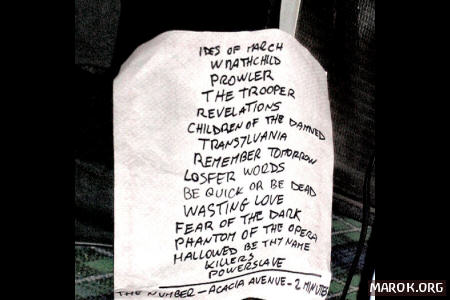 IDES OF MARCH
WRATHCHILD
PROWLER
THE TROOPER
REVELATIONS
CHILDREN OF THE DAMNED
TRANSYLVANIA
REMEMBER TOMORROW
LOSFER WORDS
BE QUICK OR BE DEAD
WASTING LOVE
FEAR OF THE DARK
PHANTOM OF THE OPERA
HALLOWED BE THY NAME
KILLERS
POWERSLAVE
THE NUMBER - ACACIA AVENUE - 2 MINUTES
MAROK.ORG